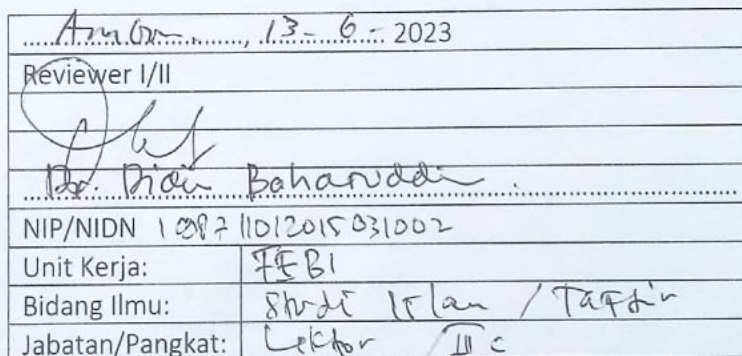 Ambon, 13 - 6 - 2023
Reviewer I/II
Dr. Didin Baharuddin
NIP/NIDN 198711012015031002
Unit Kerja: FEBI
Bidang Ilmu: Studi Islam / Tafsir
Jabatan/Pangkat: Lektor / III c